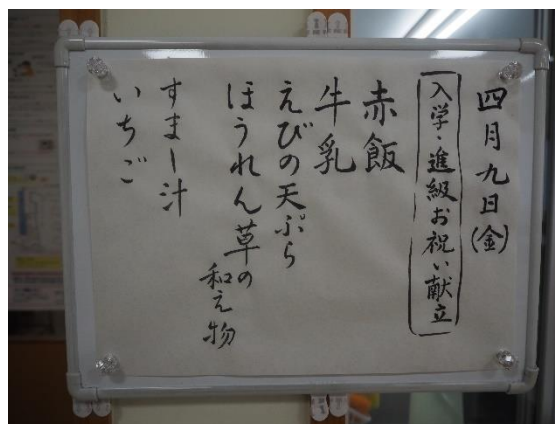 四月九日(金)
入学・進級お祝い献立
赤飯
牛乳
えびの天ぷら
ほうれん草の和え物
すまし汁
いちご